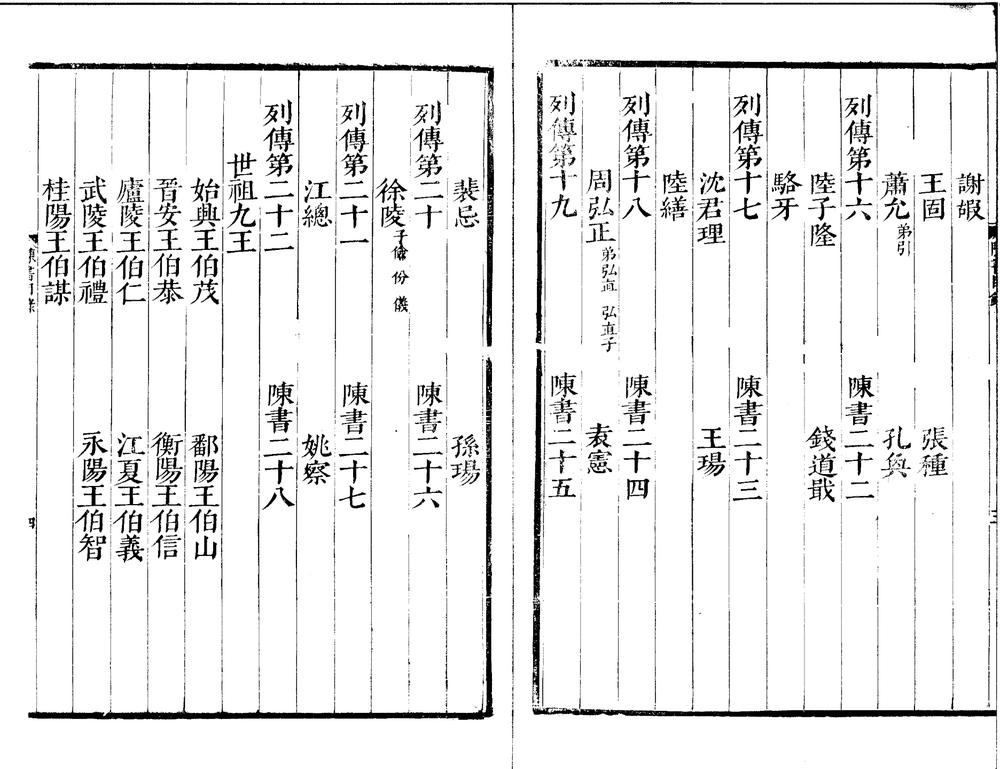 謝嘏
王固　張種
蕭允弟引　孔奐
列傳第十六　陳書二十二
陸子隆　錢道戢
駱牙
列傳第十七　陳書二十三
沈君理　王瑒
陸繕
列傳第十八　陳書二十四
周弘正弟弘直　弘直子　袁憲
列傳第十九　陳書二十五
裴忌　孫瑒
列傳第二十　陳書二十六
徐陵子儉　份　儀
列傳第二十一　陳書二十七
江總　姚察
列傳第二十二　陳書二十八
世祖九王
始興王伯茂　鄱陽王伯山
晉安王伯恭　衡陽王伯信
廬陵王伯仁　江夏王伯義
武陵王伯禮　永陽王伯智
桂陽王伯謀
陳書目錄　四